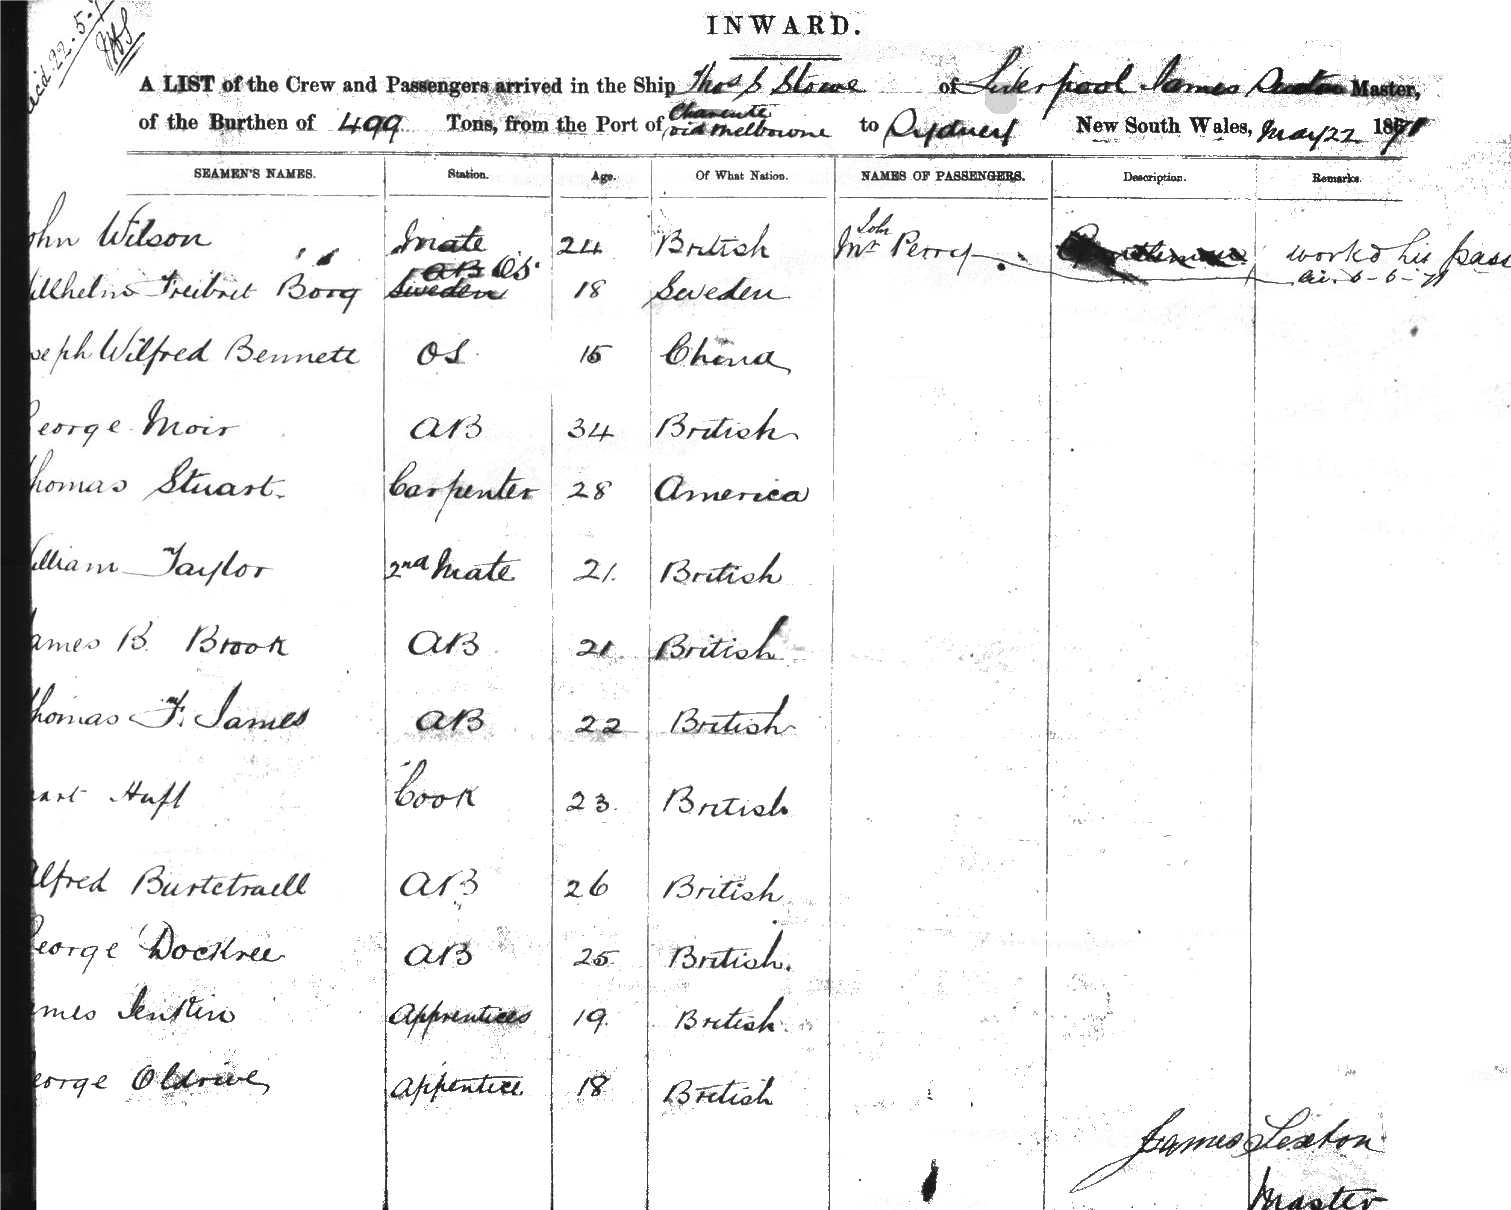 rec'd 22.5.71
INWARD.
A LIST of the Crew and Passengers arrived in the Ship Thos S Stowe of Liverpool James Sexton Master,
of the Burthen of 499 Tons, from the Port of Charente viâ Melbourne to Sydney New South Wales, May 22 1871
SEAMEN'S NAMES. Station. Age. Of What Nation. NAMES OF PASSENGERS. Description. Remarks.
ohn Wilson Mate 24 British Mr John Perry worked his pass
AB OS.
ilhelm Freibret Borg Sweden 18 Sweden 6-6-71
oseph Wilfred Bennett OS 15 China
George Moir AB 34 British
Thomas Stuart. Carpenter 28 America
William Taylor 2nd Mate 21. British
James B. Brook AB 21 British
Thomas F. James AB 22 British
Huff Cook 23. British
Alfred Burtetraell AB 26 British
George Dockree AB 25 British.
ames Jenkin Apprentices 19. British
eorge Oldrive Apprentice 18 British
James Sexton
Master